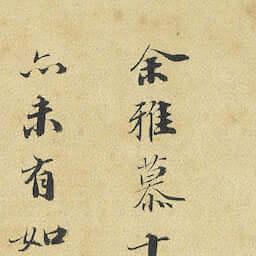 余雅慕
亦未有如